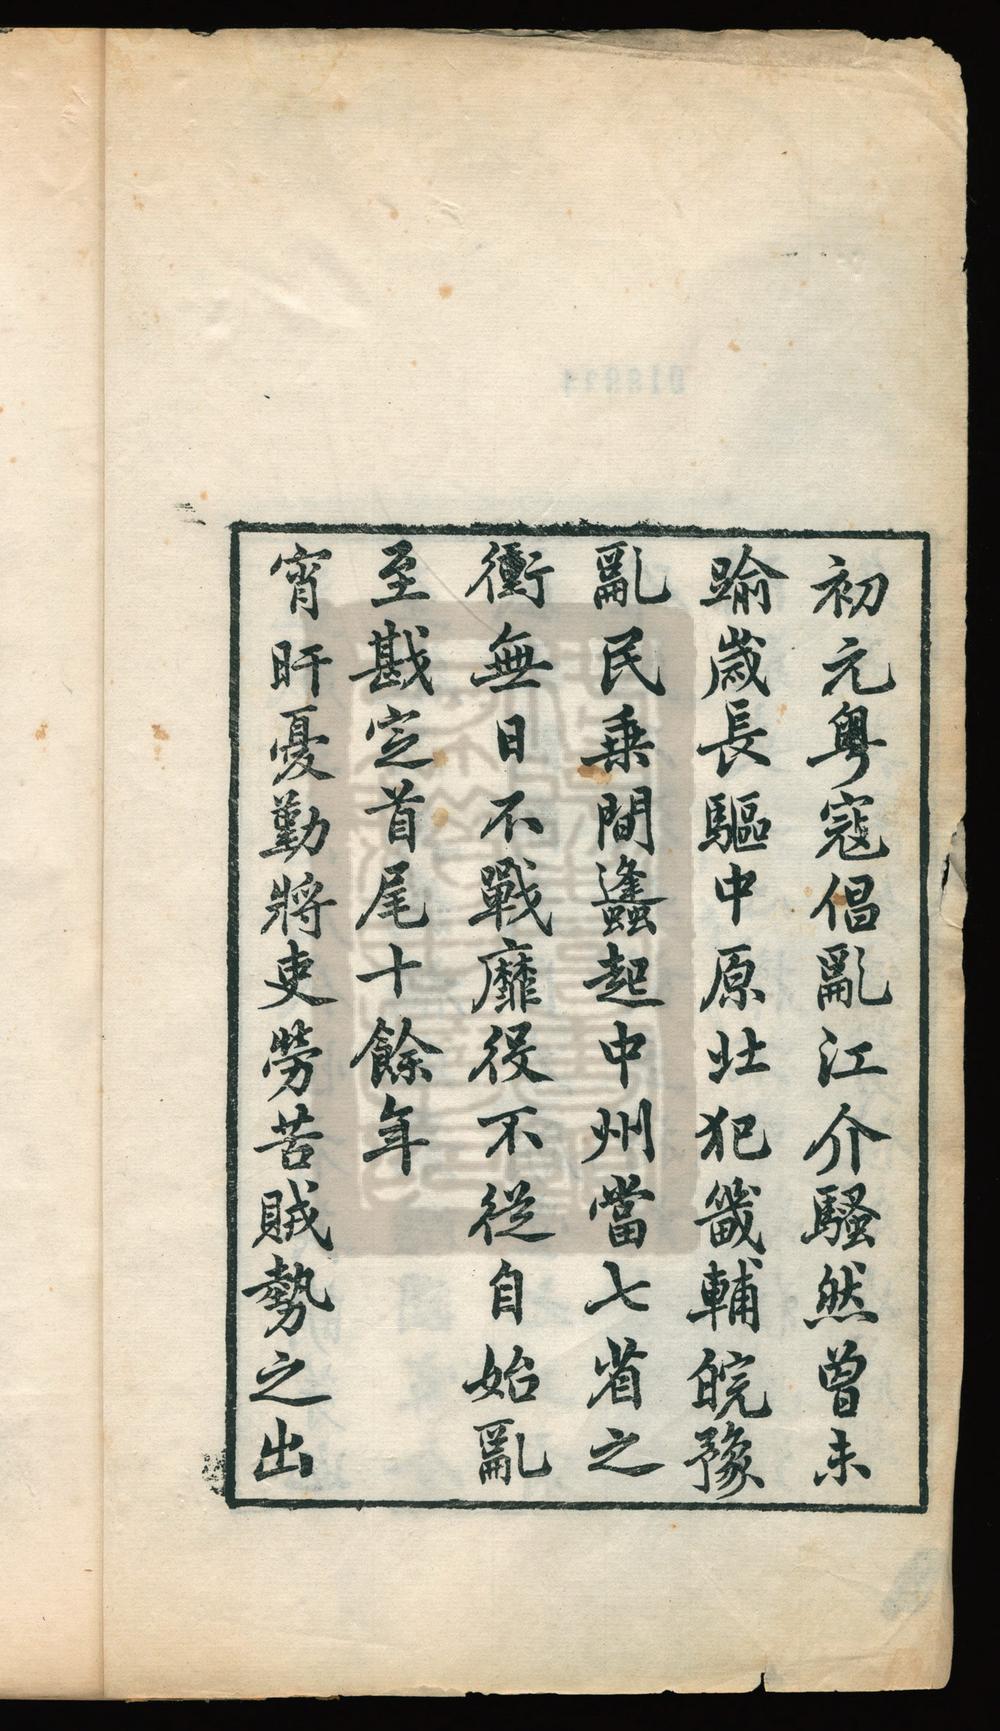 初元粤寇倡亂江介騷然曾未
踰歲長驅中原北犯畿輔皖豫
亂民乗間蠭起中州當七省之
衝無日不戰靡役不從自始亂
至戡定首尾十餘年
宵旰憂勤將吏勞苦賊勢之出